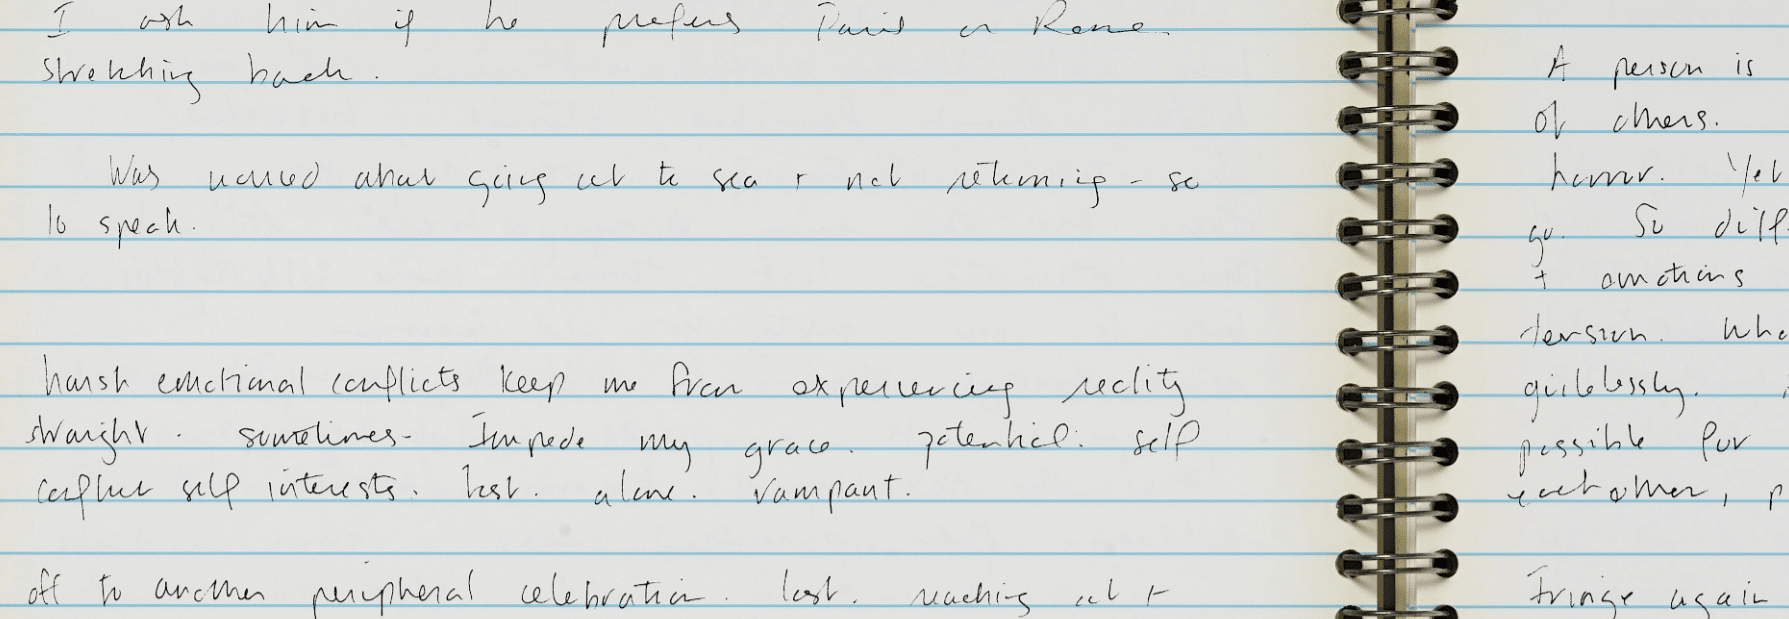 I ask him if he prefers Paris or Rome
stretching back.
Was worried about going out to sea + not returning - so
to speak.
harsh emotional conflicts keep me from experiencing reality
straight. sometimes - Impede my grace. potential. self
conflict self interests. lost. alone. rampant.
off to another peripheral celebration. lost. reaching out +
A person is
of others.
horror. Yet
go. So diff
+ emotions
tension. Who
guilelessly.
possible for
each other, p
Fringe again